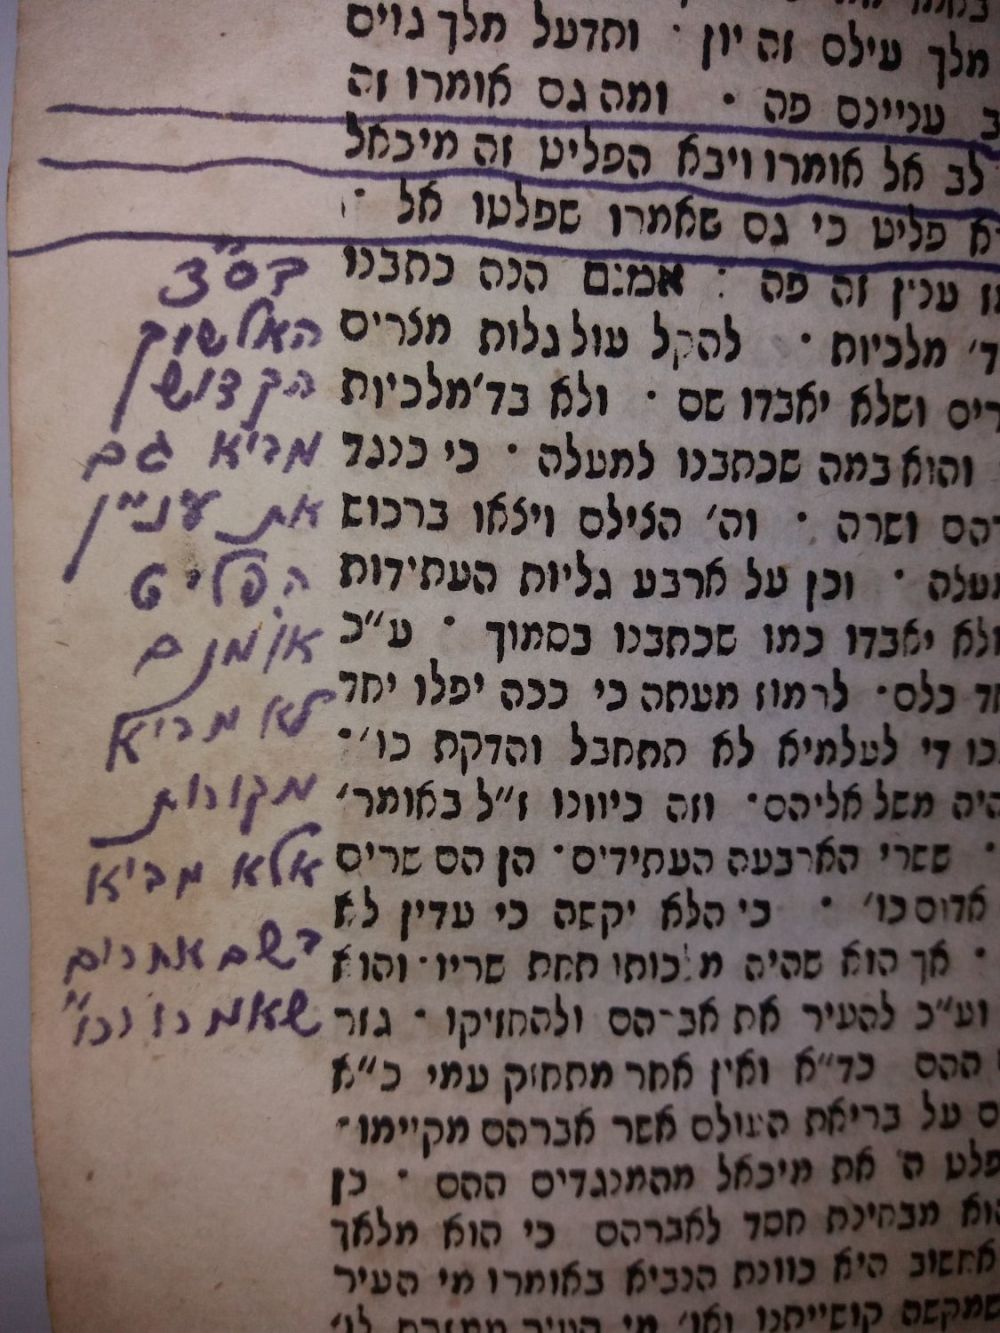 מלך עילם זה יון · ותדעל מלך גוים
עניינם פה · ומה גם אומרו זה
לב אל אומרו ויבא הפליט זה מיכאל
פליט כי גם שאמרו שפלטו אל
ענין זה פה : אמנם הנה כתבנו
ד׳ מלכיות · להקל עול גלות מצרים
ושלא יאבדו שם · ולא בד׳ מלכיות
והוא במה שכתבנו למעלה · כי כנגד
ושרה · וה׳ הצילם ויצאו ברכוש
וכן על ארבע גליות העתידות
יאבדו כמו שכתבנו בסמוך · ע״כ
כלם · לרמוז מעתה כי ככה יפלו יחד
די לעלמיא לא תתחבל והדקת כו׳ ·
היה משל אליהם · וזה כיוונו ז״ל באומר׳
· ששרי הארבעה העתידים · הן הם שרים
אדום כו׳ · כי הלא יקשה כי עדין לא
· אך הוא שהיה מלכותו תחת שריו · והוא
וע״כ להעיר את אברהם ולהחזיקו · גזר
ההם כד״א ואין אחד מתחזק עמי כ״א
על בריאת העולם אשר אברהם מקיימו ·
ה׳ את מיכאל מהמנגדים ההם · כן
מבחינת חסד לאברהם כי הוא מלאך
היא כוונת הנביא באומרו מי העיר
בס״ד
האלשיך
הקדוש
מביא גם
את עניין
הפליט
אומנם
לא מביא
מקורות
אלא מביא
בשם אחרים
שאמרו וכו״